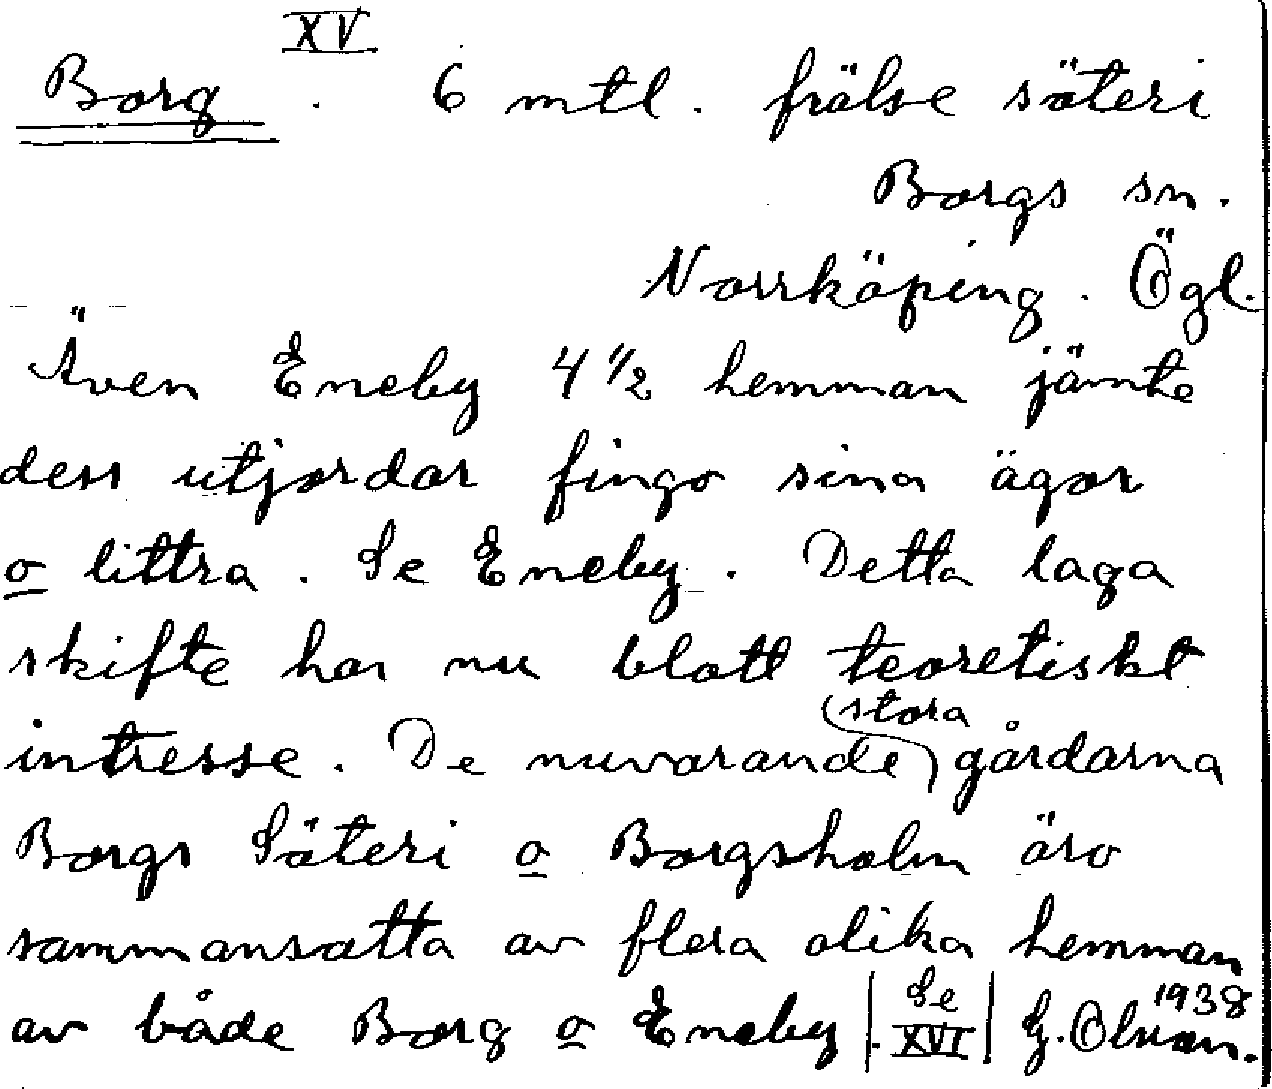 XV
Borg . 6 mtl. frälse säteri
Borgs sn.
Norrköping. Ögl.
Även Eneby 4 1/2 hemman jämte
dess utjordar fingo sina ägor
o littra. Se Eneby. Detta laga
skifte har nu blott teoretiskt
intresse. De nuvarande stora gårdarna
Borgs Säteri o Borgsholm äro
sammansatta av flera olika hemman
av både Borg o Eneby | Se XVI | G. Olsson. 1938